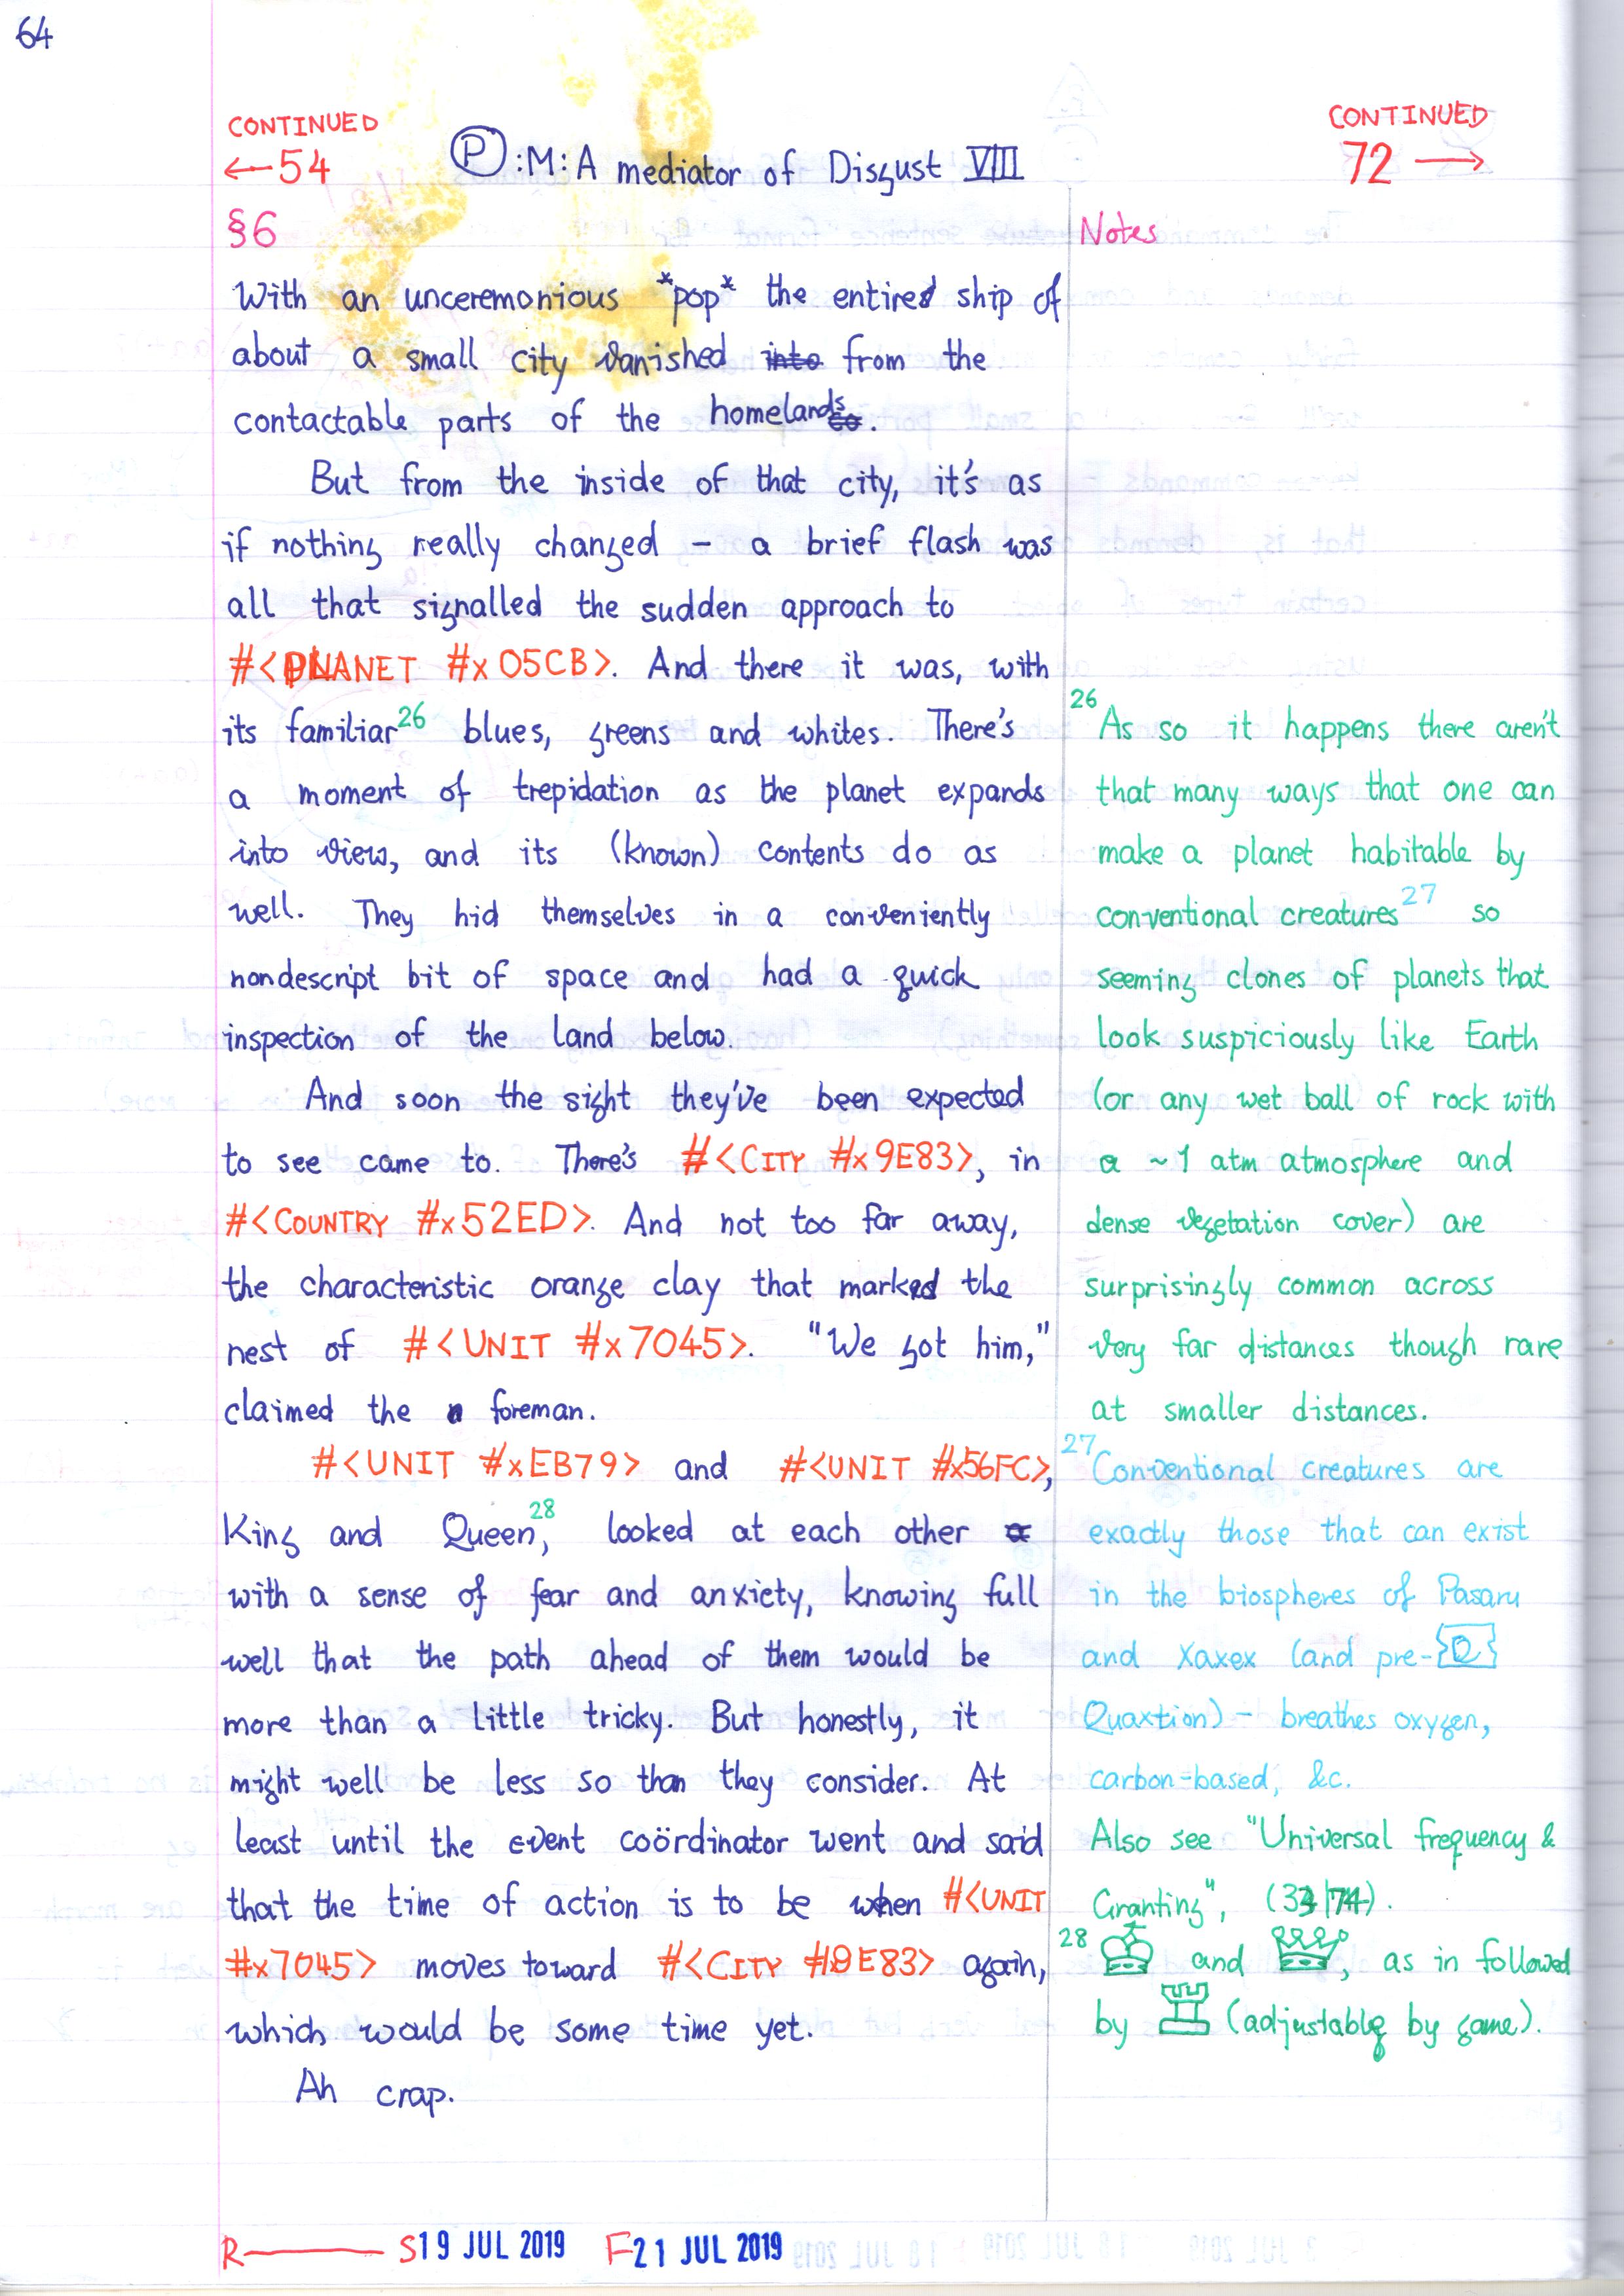 64
CONTINUED
←54
Ⓟ:M:A mediator of Disgust VIII
CONTINUED
72 →
§6
With an unceremonious *pop* the entire ship of
about a small city vanished into from the
contactable parts of the homelands.
But from the inside of that city, it's as
if nothing really changed – a brief flash was
all that signalled the sudden approach to
#<PLANET #x05CB>. And there it was, with
its familiar26 blues, greens and whites. There's
a moment of trepidation as the planet expands
into view, and its (known) contents do as
well. They hid themselves in a conveniently
nondescript bit of space and had a quick
inspection of the land below.
And soon the sight they've been expected
to see came to. There's #<CITY #x9E83>, in
#<COUNTRY #x52ED>. And not too far away,
the characteristic orange clay that marked the
nest of #<UNIT #x7045>. "We got him,"
claimed the foreman.
#<UNIT #xEB79> and #<UNIT #x56FC>,
King and Queen,28 looked at each other
with a sense of fear and anxiety, knowing full
well that the path ahead of them would be
more than a little tricky. But honestly, it
might well be less so than they consider. At
least until the event coördinator went and said
that the time of action is to be when #<UNIT
#x7045> moves toward #<CITY #9E83> again,
which would be some time yet.
Ah crap.
Notes
26 As so it happens there aren't
that many ways that one can
make a planet habitable by
conventional creatures27 so
seeming clones of planets that
look suspiciously like Earth
(or any wet ball of rock with
a ~1 atm atmosphere and
dense vegetation cover) are
surprisingly common across
very far distances though rare
at smaller distances.
27 Conventional creatures are
exactly those that can exist
in the biospheres of Pasaru
and Xaxex (and pre-
Quaxtion) – breathes oxygen,
carbon-based, &c.
Also see "Universal frequency &
Granting", (33|74).
28 and , as in followed
by (adjustable by game).
R S19 JUL 2019 F21 JUL 2019